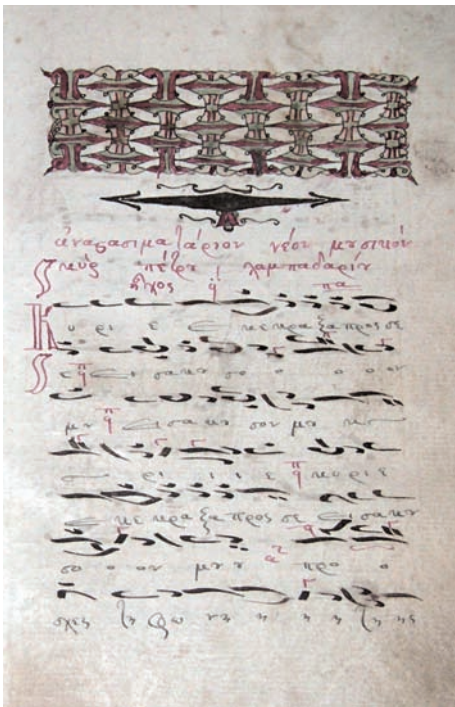 ἀναστασιματάριον νέον μουσικόν
κυρ πέτρου λαμπαδαρίου
ἦχος πα
Κυ ρι ε ε κε κρα ξα προς σε
ε ει σα κου σο ο ο ον
μου εισ α κου σον μου κυ
ρι ι ε κυ ρι ε
ε κε κρα ξα προς σε ει σα κου
σο ο ον μου προ ο
σχες τη φω νη η η η της